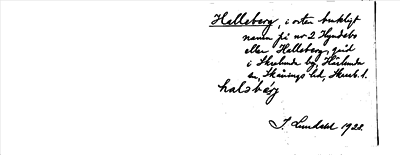 Halleberg, i orten brukligt
namn på nr 2 Hyndebo
eller Halleberg, gård
i Skrulunda by, Härlunda
sn, Skånings hd, Skarab. l.
halsbärg
J. Lundahl 1922.